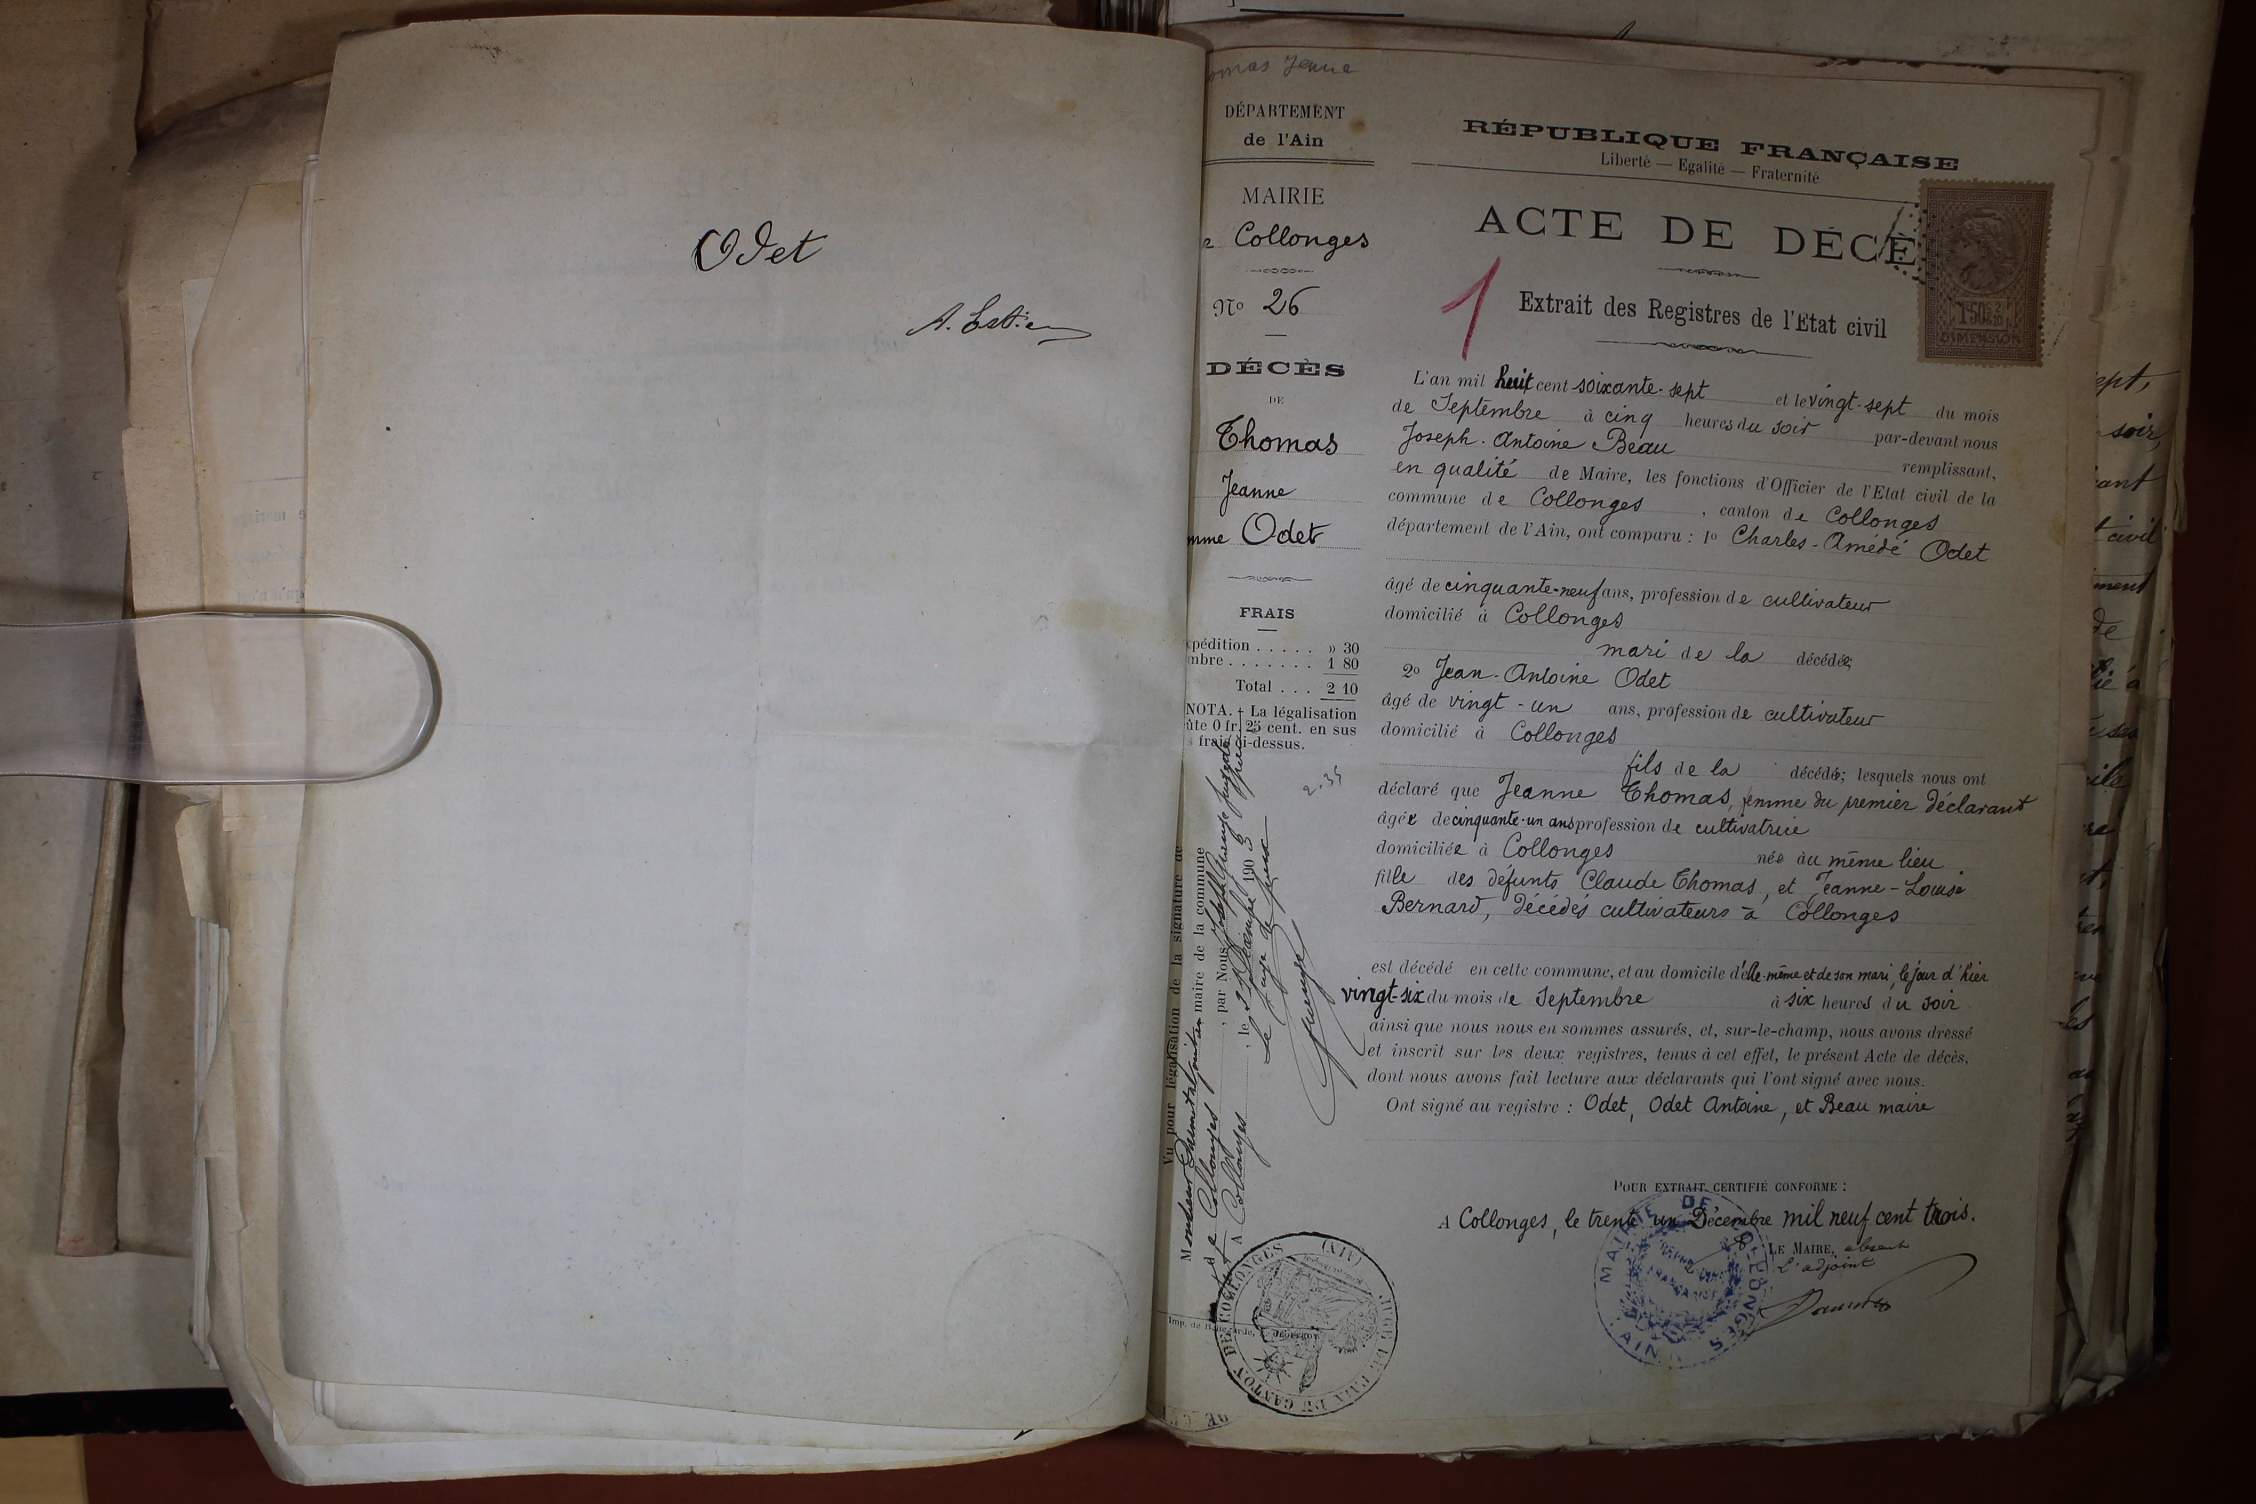 Odet
omas Jeanne
DÉPARTEMENT
de l'Ain
MAIRIE
Collonges
No 26
DÉCÈS
DE
Thomas
Jeanne
mme Odet
FRAIS
pédition . . . . . » 30
mbre . . . . . . . 1 80
Total . . . 2 10
NOTA. - La légalisation
ûte 0 fr. 25 cent. en sus
frais ci-dessus.
2.35
Vu pour légalisation de la signature de
Monsieur adjoint au maire de la commune
de Collonges, par Nous, Joseph juge de paix
A Collonges, le 31 Décembre 1903
Le juge de paix
RÉPUBLIQUE FRANÇAISE
Liberté — Egalité — Fraternité
ACTE DE DÉCÈ
1
Extrait des Registres de l'Etat civil
DIMENSION
L'an mil huit cent soixante-sept et le vingt-sept du mois
de Septembre à cinq heures du soir par-devant nous
Joseph-Antoine Beau remplissant,
en qualité de Maire, les fonctions d'Officier de l'Etat civil de la
commune de Collonges, canton de Collonges
département de l'Ain, ont comparu : 1o Charles-Amédé Odet
âgé de cinquante-neuf ans, profession de cultivateur
domicilié à Collonges
mari de la décédée;
2o Jean-Antoine Odet
âgé de vingt-un ans, profession de cultivateur
domicilié à Collonges
fils de la décédée; lesquels nous ont
déclaré que Jeanne Thomas, femme du premier déclarant
âgée de cinquante-un ans profession de cultivatrice
domiciliée à Collonges née au même lieu
fille des défunts Claude Thomas, et Jeanne-Louise
Bernard, décédés cultivateurs à Collonges
est décédé en cette commune, et au domicile d'elle-même et de son mari, le jour d'hier
vingt-six du mois de Septembre à six heures du soir
ainsi que nous nous en sommes assurés, et, sur-le-champ, nous avons dressé
et inscrit sur les deux registres, tenus à cet effet, le présent Acte de décès,
dont nous avons fait lecture aux déclarants qui l'ont signé avec nous.
Ont signé au registre : Odet, Odet Antoine, et Beau maire
POUR EXTRAIT CERTIFIÉ CONFORME :
A Collonges, le trente un Décembre mil neuf cent trois.
LE MAIRE, absent
L'adjoint
MAIRIE DE COLLONGES
AIN
JUGE DE PAIX DU CANTON DE COLLONGES (AIN)
ept,
soir,
ant
civil
ment
de